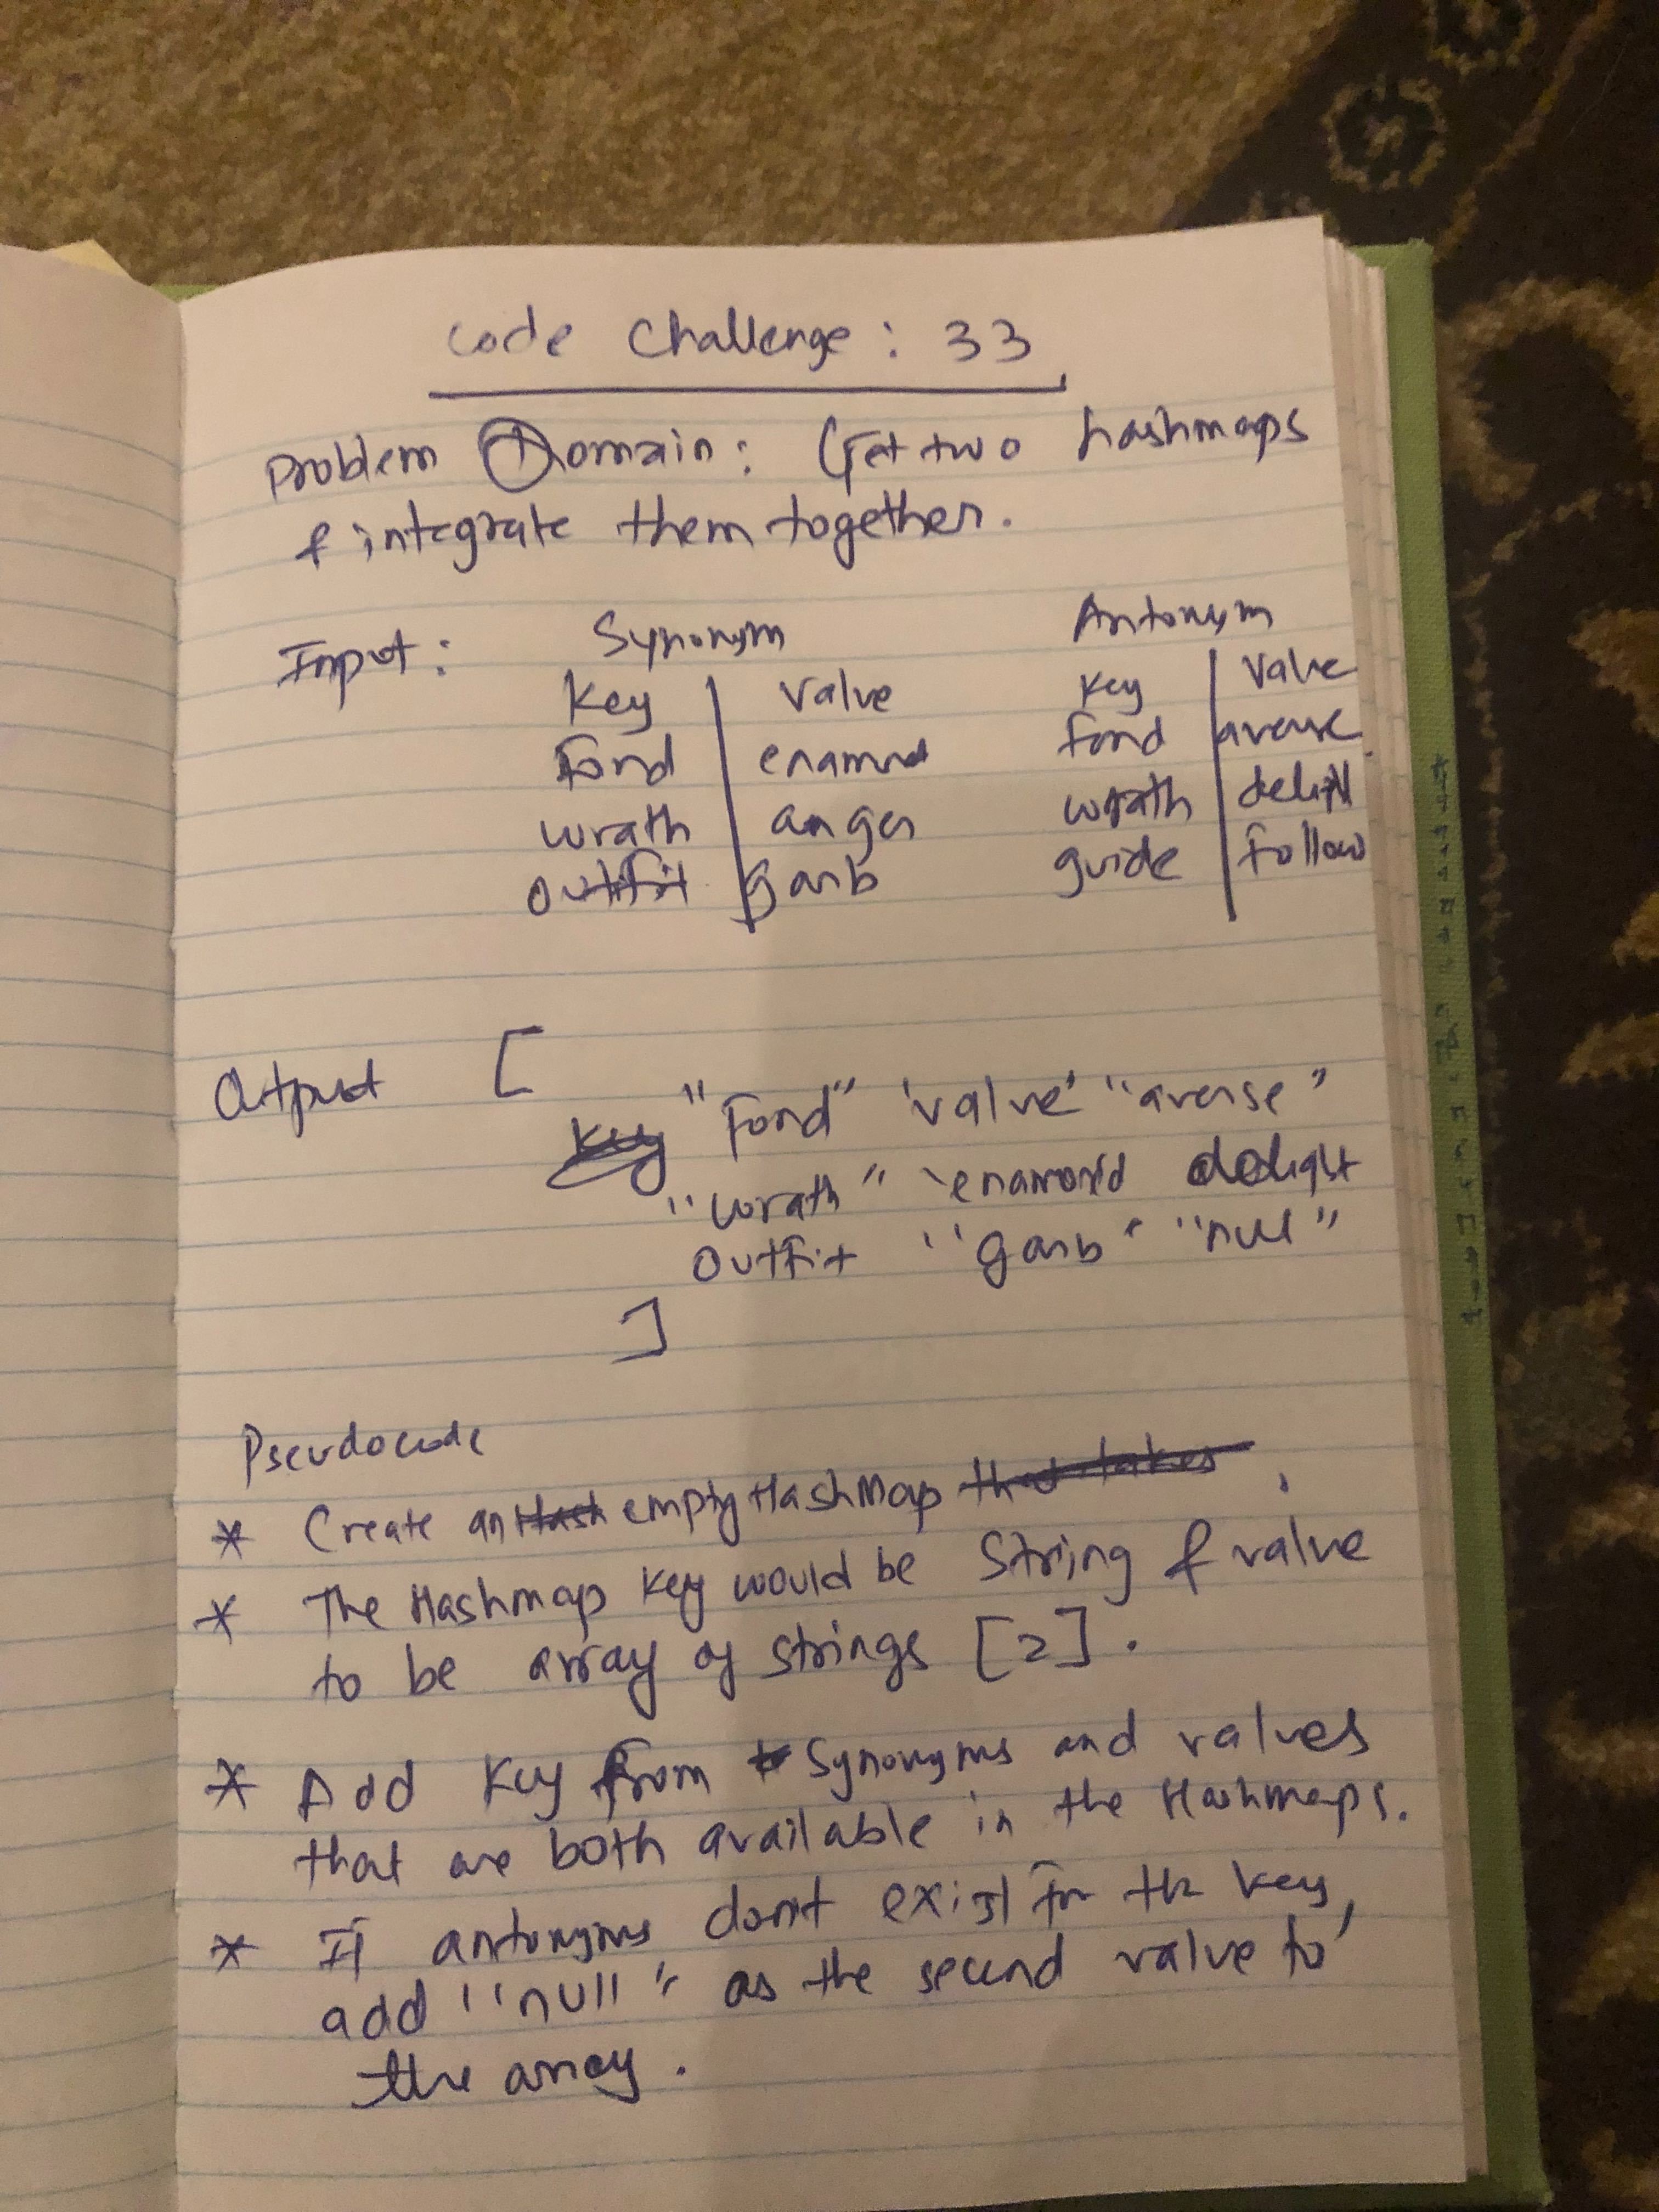 Code Challenge: 33
Problem Domain: Get two hashmaps
& integrate them together.
Input: Synonym Antonym
Key Value Key Value
Fond enamrd fond averse
wrath anger wrath delight
outfit garb guide follow
Output [
Key "Fond" 'value' "averse"
"wrath" 'enamored delight
Outfit "garb" "null"
]
Pseudocode
* Create an Hash empty HashMap that takes.
* The Hashmap Key would be String & value
to be array of strings [2].
* Add Key from Synonyms and values
that are both available in the Hashmaps.
* If antonyms don't exist for the key,
add "null" as the second value to
the array.